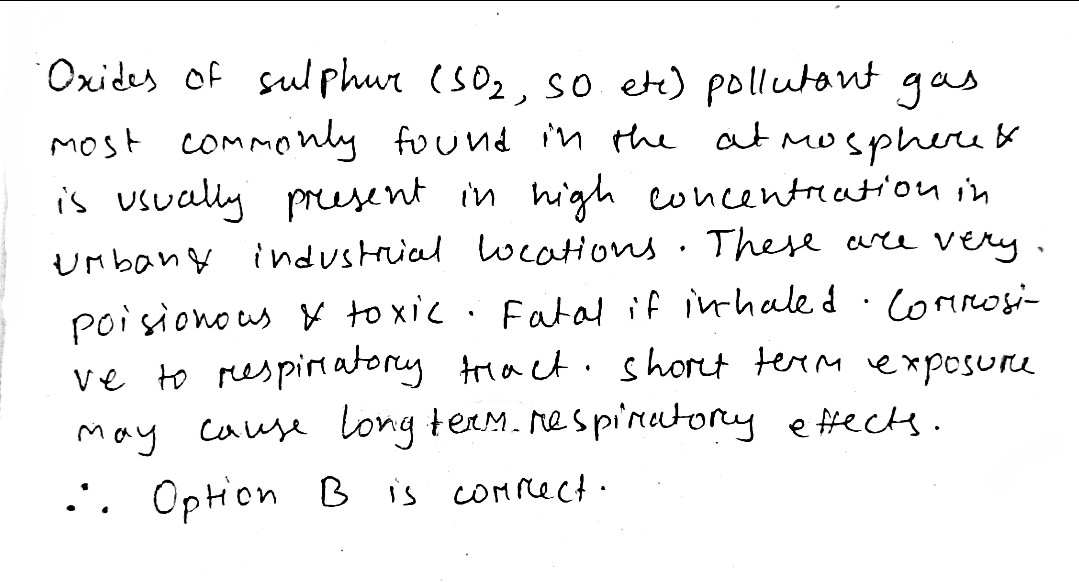 Oxides of sulphur (SO₂, SO etc) pollutant gas
most commonly found in the atmosphere &
is usually present in high concentration in
urban & industrial locations. These are very
poisionous & toxic. Fatal if inhaled. Corrosi-
ve to respiratory tract. short term exposure
may cause long term respiratory effects.
∴ Option B is correct.